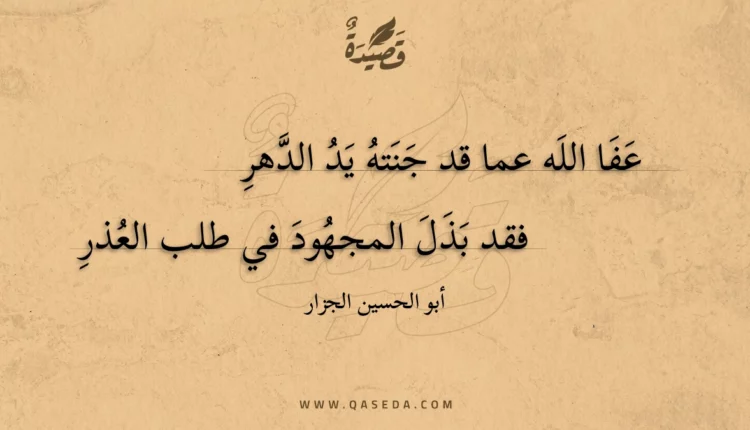 قَصِيْدَةٌ
عَفَا اللَه عما قد جَنَتهُ يَدُ الدَّهرِ
فقد بَذَلَ المجهُودَ في طلب العُذرِ
أبو الحسين الجزار
WWW.QASEDA.COM